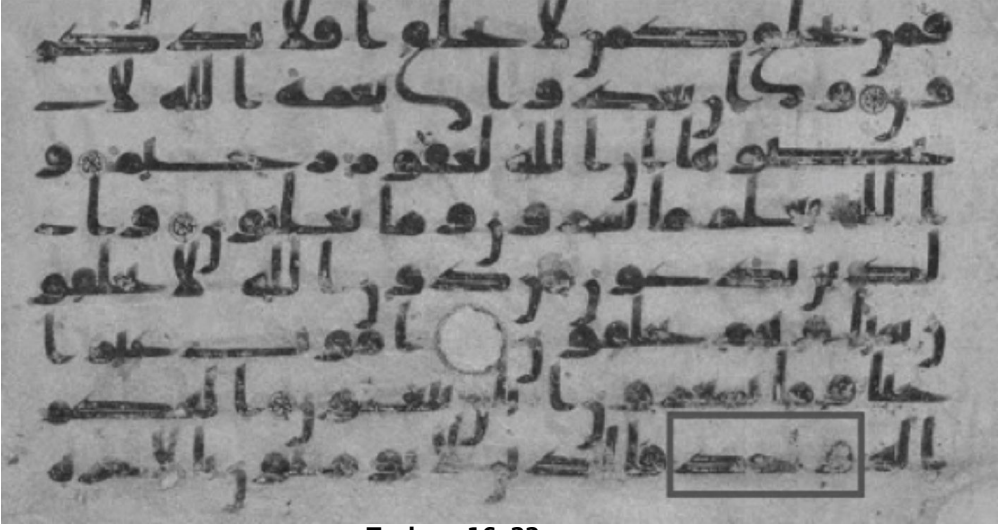 فمن يخلق كمن لا يخلق افلا تذكر
ون وان تعدوا نعمة الله لا
تحصوها ان الله لغفور رحيم و
الله يعلم ما تسرون وما تعلنون وا
لذين يدعون من دون الله لا يخلقو
ن شيا وهم يخلقون اموت غير ا
حيا وما يشعرون ايان يبعثون الهكم
اله وحد فالذين لا يومنون بالاخره